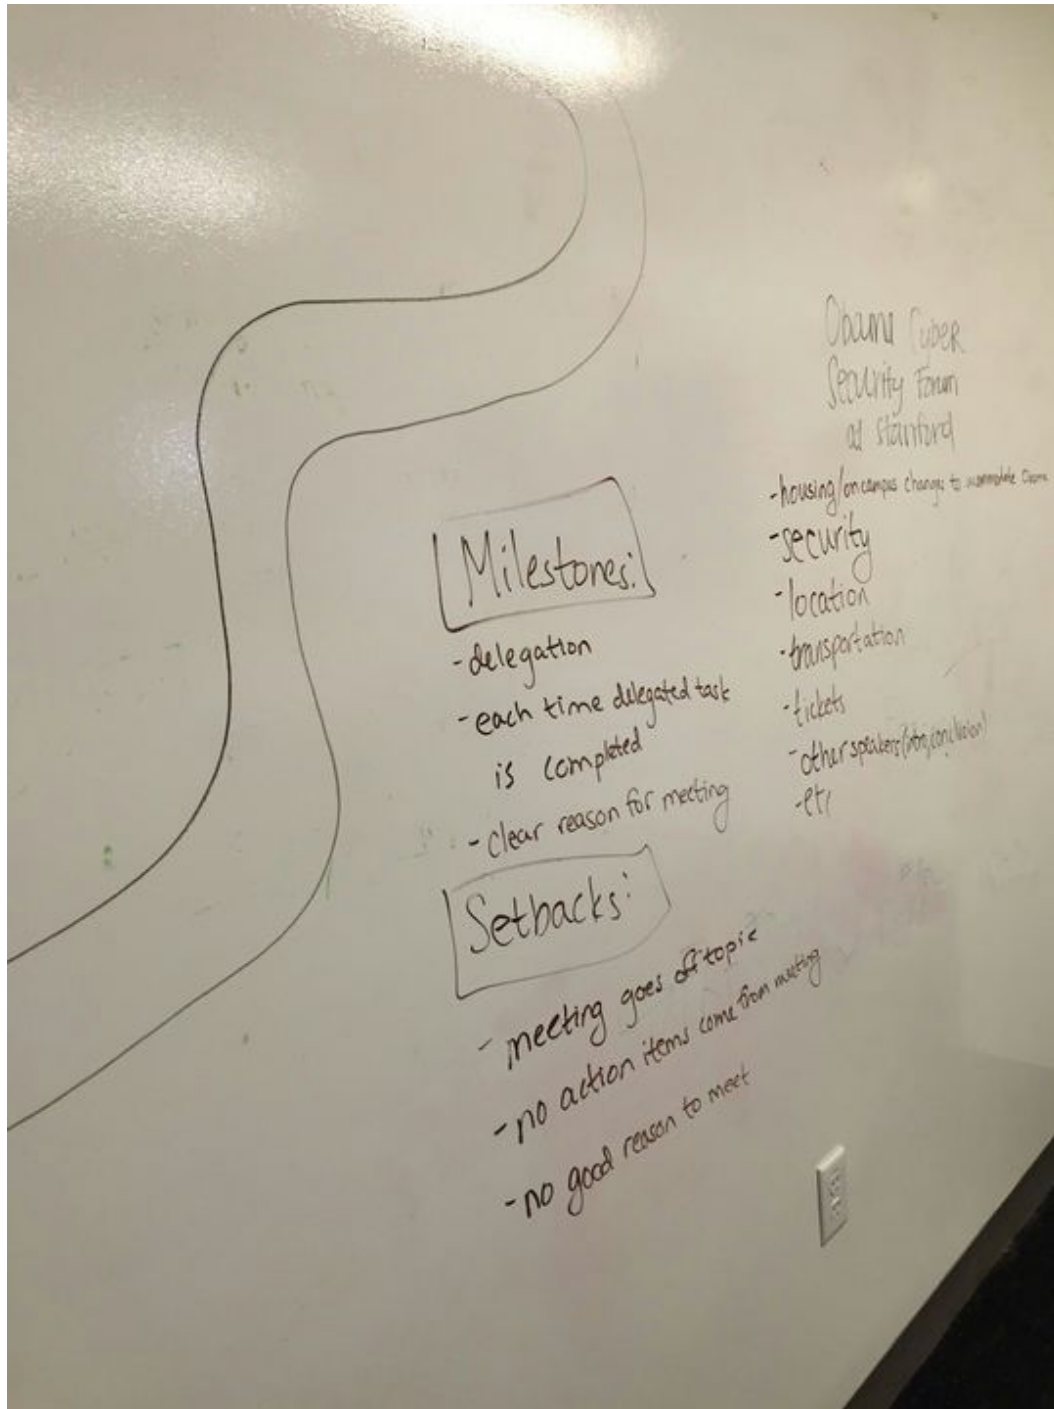 Milestones:
-delegation
-each time delegated task
is completed
-clear reason for meeting
Setbacks:
-meeting goes off topic
-no action items come from meeting
-no good reason to meet
Obama Cyber
Security Forum
at Stanford
-housing/on campus changes to accommodate Obama
-security
-location
-transportation
-tickets
-other speakers (intro, conclusion)
-etc